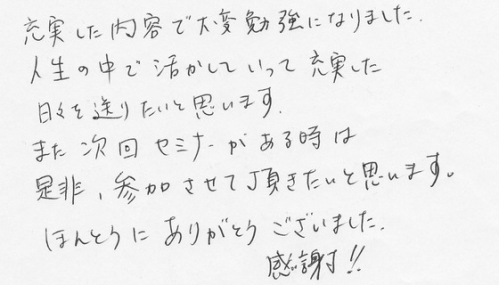 充実した内容で大変勉強になりました.
人生の中で活かしていって充実した
日々を送りたいと思います.
また次回セミナーがある時は
是非、参加させて頂きたいと思います。
ほんとうにありがとうございました.
感謝!!